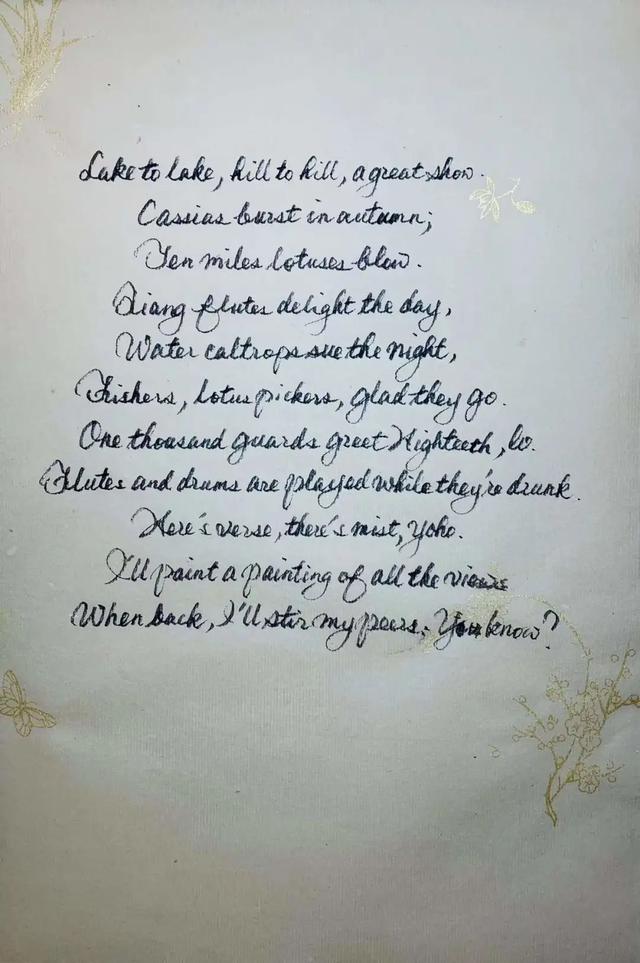 Lake to lake, hill to hill, a great show.
Cassias burst in autumn;
Ten miles lotuses blow.
Qiang flutes delight the day,
Water caltrops sue the night,
Fishers, lotus pickers, glad they go.
One thousand guards greet Highteeth, lo.
Flutes and drums are played while they're drunk.
Here's verse, there's mist, Yoho.
I'll paint a painting of all the views
When back, I'll stir my peers. You know?